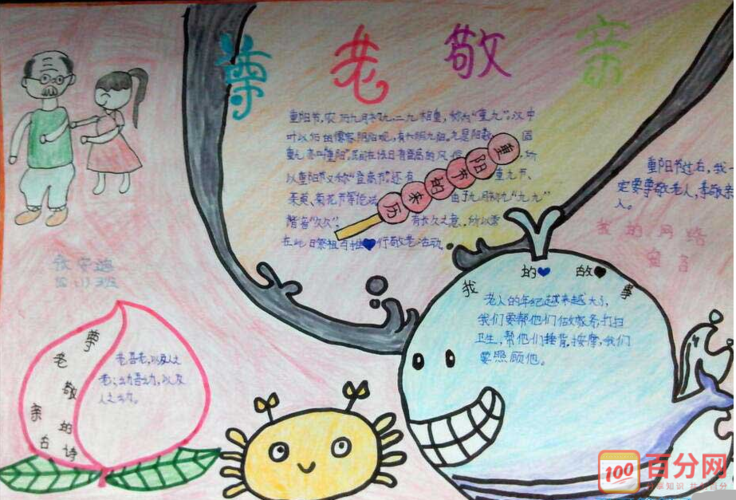 尊老敬亲
重阳节,农历九月初九,二九相重,称为"重九",汉中
叶以后的儒家阴阳观,有六阴九阳。九是阳数,固
重九亦叫"重阳",民间在该日有登高的风俗,所
以重阳节又称"登高节"还有重九节、
茱萸、菊花节等说法。由于九月初九"九九"
谐音"久久",有长久之意,所以常
在此日祭祖与推行敬老活动。
重阳节的来历
重阳节过后,我一
定要尊敬老人,孝敬亲
人。
我的网络
宣言
四
班
尊老敬亲的古诗
老吾老,以及人之
老;幼吾幼,以及
人之幼。
我的故事
老人的年纪越来越大了,
我们要帮他们做家务,打扫
卫生,帮他们捶背,按摩,我们
要照顾他。
100
百分网